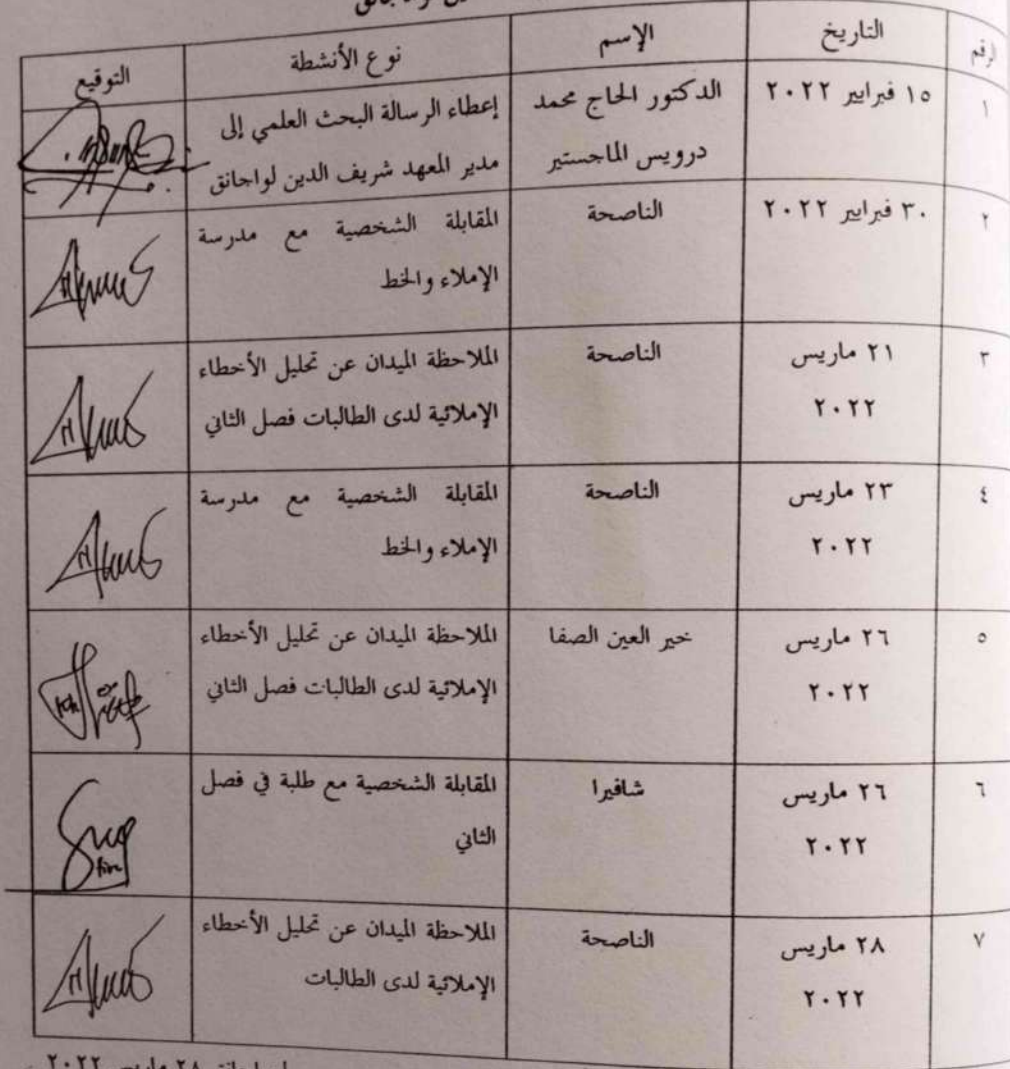 الرقم التاريخ الإسم نوع الأنشطة التوقيع
١ ١٥ فبراير ٢٠٢٢ الدكتور الحاج محمد إعطاء الرسالة البحث العلمي إلى
درويس الماجستير مدير المعهد شريف الدين لواجانق
٢ ٣٠ فبراير ٢٠٢٢ الناصحة المقابلة الشخصية مع مدرسة
الإملاء والخط
٣ ٢١ ماريس الناصحة الملاحظة الميدان عن تحليل الأخطاء
٢٠٢٢ الإملائية لدى الطالبات فصل الثاني
٤ ٢٣ ماريس الناصحة المقابلة الشخصية مع مدرسة
٢٠٢٢ الإملاء والخط
٥ ٢٦ ماريس خير العين الصفا الملاحظة الميدان عن تحليل الأخطاء
٢٠٢٢ الإملائية لدى الطالبات فصل الثاني
٦ ٢٦ ماريس شافيرا المقابلة الشخصية مع طلبة في فصل
٢٠٢٢ الثاني
٧ ٢٨ ماريس الناصحة الملاحظة الميدان عن تحليل الأخطاء
٢٠٢٢ الإملائية لدى الطالبات
٢٨ ماريس ٢٠٢٢